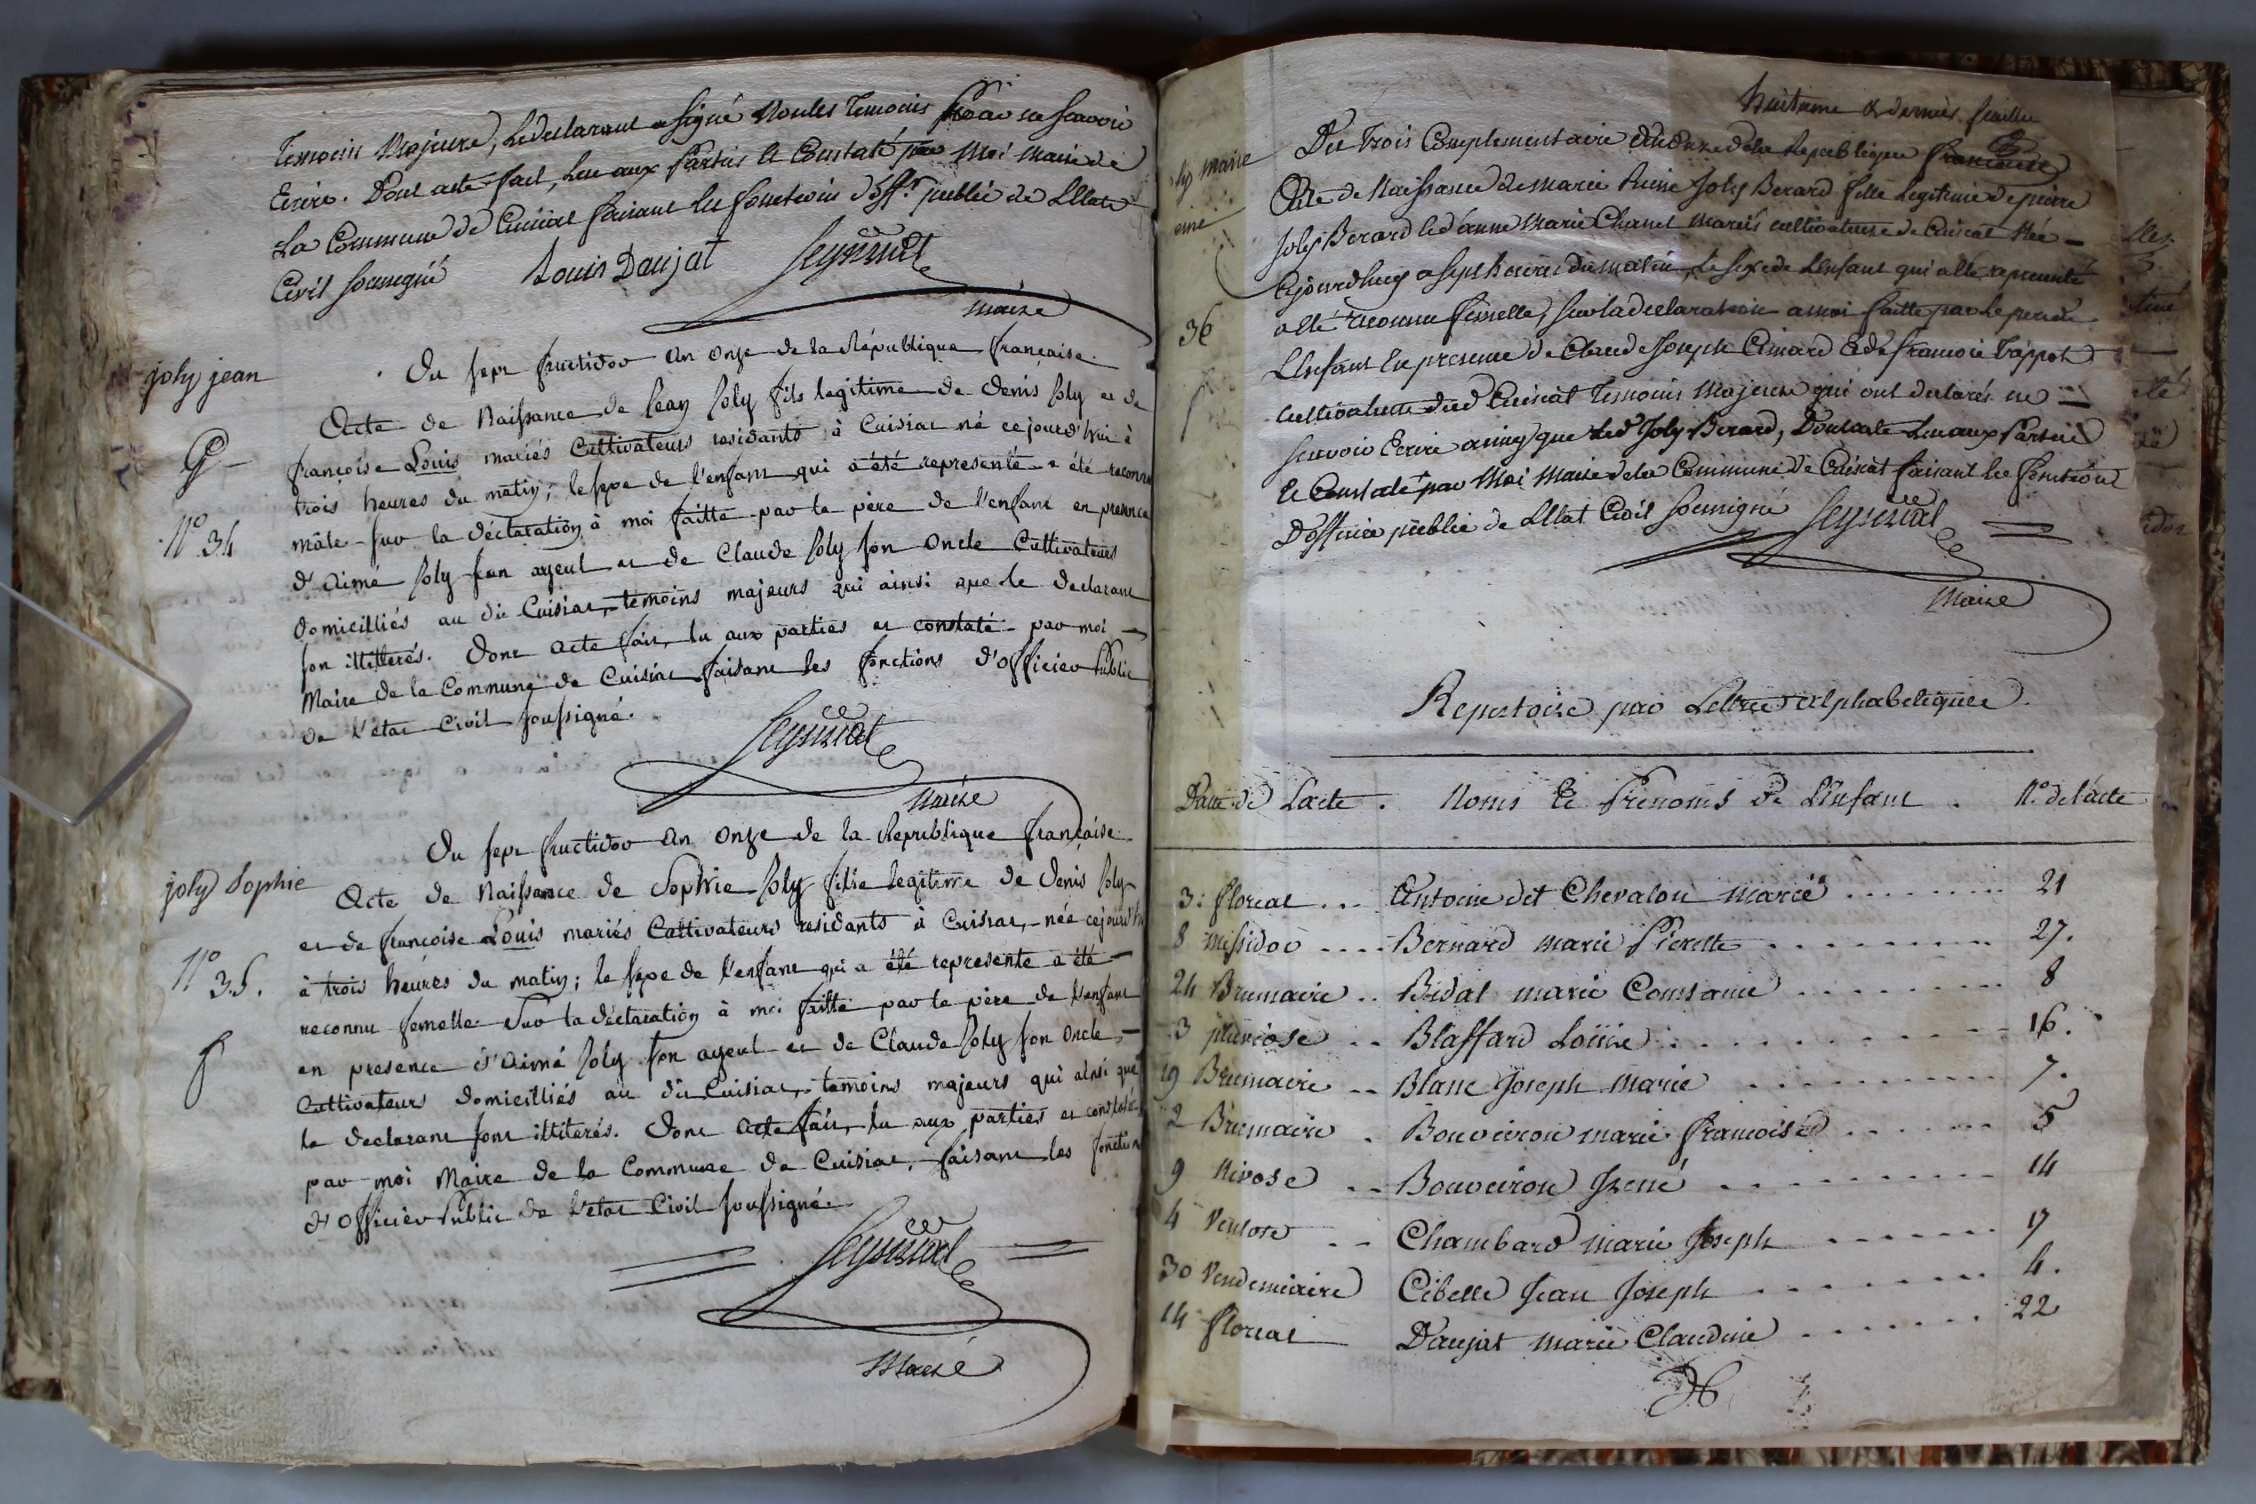 temoins Majeurs, Le declarant a signé Non les temoins pour ne scavoir
Ecrire. Dont acte fait, Lu aux Parties Et Constaté par Moi Maire de
La Commune de Cuisiat faisant les fonctions d'off.r public de L'Etat
Civil soussigné Louis Daujat Seyssuel
maire
joly jean
G
N° 34
Du sept fructidor An Onze de la République française.
Acte de Naissance de Jean Joly fils legitime de Denis Joly et de
françoise Louis mariés Cultivateurs residants à Cuisiat né cejourd'hui à
trois heures du matin; le sexe de l'enfant qui a été representé a été reconnu
mâle sur la déclaration à moi faitte par le père de l'enfant en presence
d'Aimé Joly son ayeul et de Claude Joly son Oncle Cultivateurs
domicilliés au dit Cuisiat, temoins majeurs qui ainsi que le declarant
son illitterés. Dont Acte fait, lu aux parties et constaté par moi
Maire de la Commune de Cuisiat faisant les fonctions d'Officier Public
de l'etat Civil soussigné.
maire
joly Sophie
N° 35.
f
Du sept fructidor An Onze de la République française
Acte de Naissance de Sophie Joly fille legitime de Denis Joly
et de françoise Louis mariés Cultivateurs residants à Cuisiat, née cejourd'hui
à trois heures du matin; le sexe de l'enfant qui a été representé a été
reconnu femelle Sur la déclaration à moi faitte par le père de l'enfant
en presence d'Aimé Joly son ayeul et de Claude Joly son Oncle,
Cultivateurs domicilliés au dit Cuisiat, temoins majeurs qui ainsi que
le declarant sont illiterés. Dont Acte fait, lu aux parties et constaté
par moi Maire de la Commune de Cuisiat, faisant les fonctions
d'Officier Public de l'etat Civil soussigné.
Maire
huitieme & dernier feuillet
36
f
Du trois Complementaire An Onze de la Republique francaise
Acte de Naissance de marie Joly Berard fille Legitime de pierre
Joly Berard et d'anne Marie Chanel mariés cultivateurs de Cuisiat Née
Cejourdhuy a sept heures du matin, Le sexe de L'enfant qui a été representé
a été reconnu femelle, sur la declaration a moi faitte par le pere de
L'enfant En presence de Claude Joseph et de francois
cultivateurs dud Cuisiat Temoins Majeurs qui ont declarés ne
scavoir Ecrire ainsy que led Joly Berard, Dont acte Lu aux Parties
Et Constaté par Moi Maire de la Commune de Cuisiat faisant les fonctions
D'officier public de L'Etat Civil soussigné
Maire
Repertoire par Lettres Alphabetiques
Date de L'acte. Noms Et Prénoms de L'Enfant. N.° de l'acte
3: floreal ... Antoine dit Chevalon marie ........ 21
8 Messidor .... Bernard marie Pierrette ........ 27.
24 Brumaire .. Bidal marie Constance ........ 8
3 pluviose .. Blaffard Loüise ........ 16.
19 Brumaire .. Blanc Joseph Marie ........ 7.
2 Brumaire . Bouveiron marie francoise ...... 5
9 Nivose .. Bouveiron Irené ........ 14
4 Ventose .. Chambard marie Joseph ...... 17
30 Vendemiaire Cibelle Jean Joseph ........ 4.
14 floreal Daujat marie Claudine ....... 22